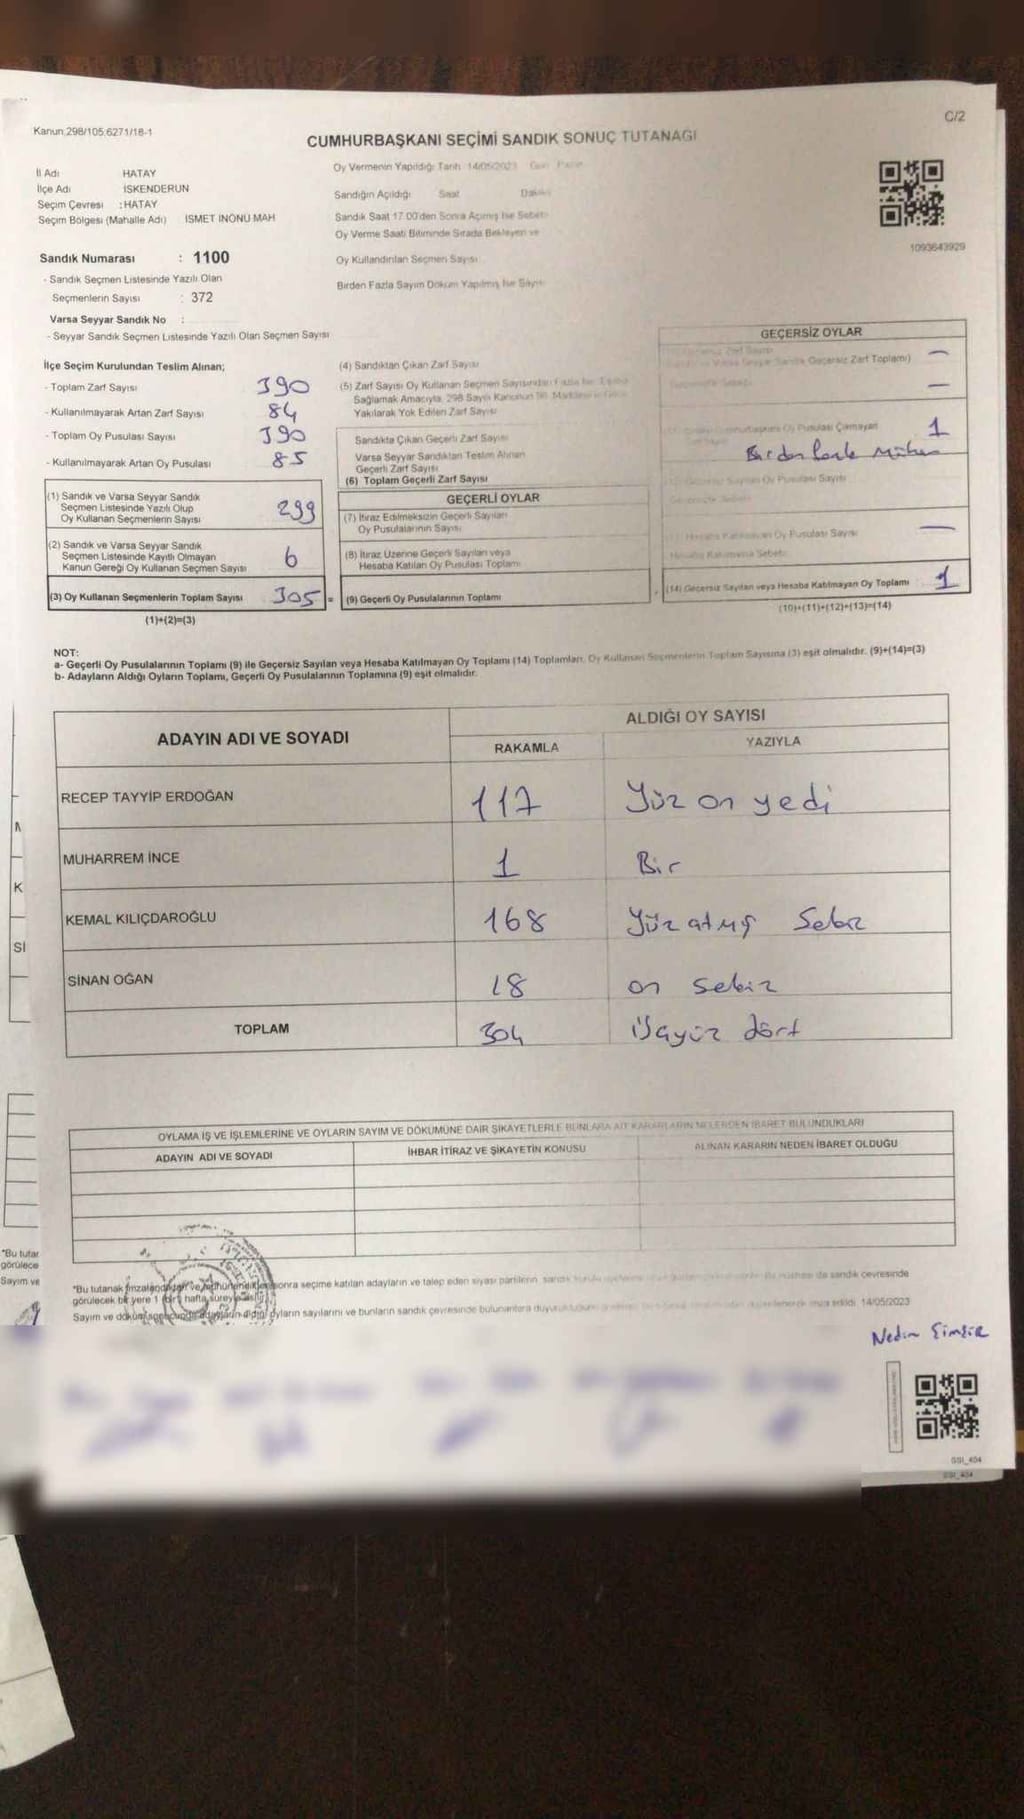 C/2
Kanun:298/105;6271/18-1
CUMHURBAŞKANI SEÇİMİ SANDIK SONUÇ TUTANAĞI
İl Adı HATAY
İlçe Adı İSKENDERUN
Seçim Çevresi : HATAY
Seçim Bölgesi (Mahalle Adı) İSMET İNÖNÜ MAH
Oy Vermenin Yapıldığı Tarih 14/05/2023 Gün Pazar
Sandığın Açıldığı Saat Dakika
Sandık Saat 17.00'den Sonra Açılmış İse Sebebi
Oy Verme Saati Bitiminde Sırada Bekleyen ve
Oy Kullandırılan Seçmen Sayısı
Birden Fazla Sayım Döküm Yapılmış İse Sayısı
1093643929
Sandık Numarası : 1100
- Sandık Seçmen Listesinde Yazılı Olan
Seçmenlerin Sayısı : 372
Varsa Seyyar Sandık No :
- Seyyar Sandık Seçmen Listesinde Yazılı Olan Seçmen Sayısı
İlçe Seçim Kurulundan Teslim Alınan;
- Toplam Zarf Sayısı 390
- Kullanılmayarak Artan Zarf Sayısı 84
- Toplam Oy Pusulası Sayısı 390
- Kullanılmayarak Artan Oy Pusulası 85
(1) Sandık ve Varsa Seyyar Sandık
Seçmen Listesinde Yazılı Olup
Oy Kullanan Seçmenlerin Sayısı 299
(2) Sandık ve Varsa Seyyar Sandık
Seçmen Listesinde Kayıtlı Olmayan
Kanun Gereği Oy Kullanan Seçmen Sayısı 6
(3) Oy Kullanan Seçmenlerin Toplam Sayısı 305
(1)+(2)=(3)
(4) Sandıktan Çıkan Zarf Sayısı
(5) Zarf Sayısı Oy Kullanan Seçmen Sayısından Fazla İse
Sağlamak Amacıyla, 298 Sayılı Kanunun
Yakılarak Yok Edilen Zarf Sayısı
Sandıkta Çıkan Geçerli Zarf Sayısı
Varsa Seyyar Sandıktan Teslim Alınan
Geçerli Zarf Sayısı
(6) Toplam Geçerli Zarf Sayısı
GEÇERLİ OYLAR
(7) İtiraz Edilmeksizin Geçerli Sayılan
Oy Pusulalarının Sayısı
(8) İtiraz Üzerine Geçerli Sayılan veya
Hesaba Katılan Oy Pusulası Toplamı
= (9) Geçerli Oy Pusulalarının Toplamı
GEÇERSİZ OYLAR
Geçersiz Zarf Toplamı) —
—
Oy Pusulası Çıkmayan 1
Oy Pusulası Sayısı
Oy Pusulası Sayısı —
(14) Geçersiz Sayılan veya Hesaba Katılmayan Oy Toplamı 1
(10)+(11)+(12)+(13)=(14)
NOT:
a- Geçerli Oy Pusulalarının Toplamı (9) ile Geçersiz Sayılan veya Hesaba Katılmayan Oy Toplamı (14) Toplamları, Oy Kullanan Seçmenlerin Toplam Sayısına (3) eşit olmalıdır. (9)+(14)=(3)
b- Adayların Aldığı Oyların Toplamı, Geçerli Oy Pusulalarının Toplamına (9) eşit olmalıdır.
ADAYIN ADI VE SOYADI ALDIĞI OY SAYISI
RAKAMLA YAZIYLA
RECEP TAYYİP ERDOĞAN 117 Yüz on yedi
MUHARREM İNCE 1 Bir
KEMAL KILIÇDAROĞLU 168 Yüz atmış Sekiz
SİNAN OĞAN 18 on sekiz
TOPLAM 304 Üçyüz dört
OYLAMA İŞ VE İŞLEMLERİNE VE OYLARIN SAYIM VE DÖKÜMÜNE DAİR ŞİKAYETLERLE BUNLARA AİT KARARLARIN NELERDEN İBARET BULUNDUKLARI
ADAYIN ADI VE SOYADI İHBAR İTİRAZ VE ŞİKAYETİN KONUSU ALINAN KARARIN NEDEN İBARET OLDUĞU
*Bu tutanak sonra seçime katılan adayların ve talep eden siyasi partilerin de sandık çevresinde
görülecek bir yere 1 (bir) hafta süreyle
Sayım ve oyların sayılarını ve bunların sandık çevresinde bulunanlara 14/05/2023
Nedim Şimşir
GSI_404
GSI_404
N
K
Sİ
*Bu tutar
görülece
Sayım ve